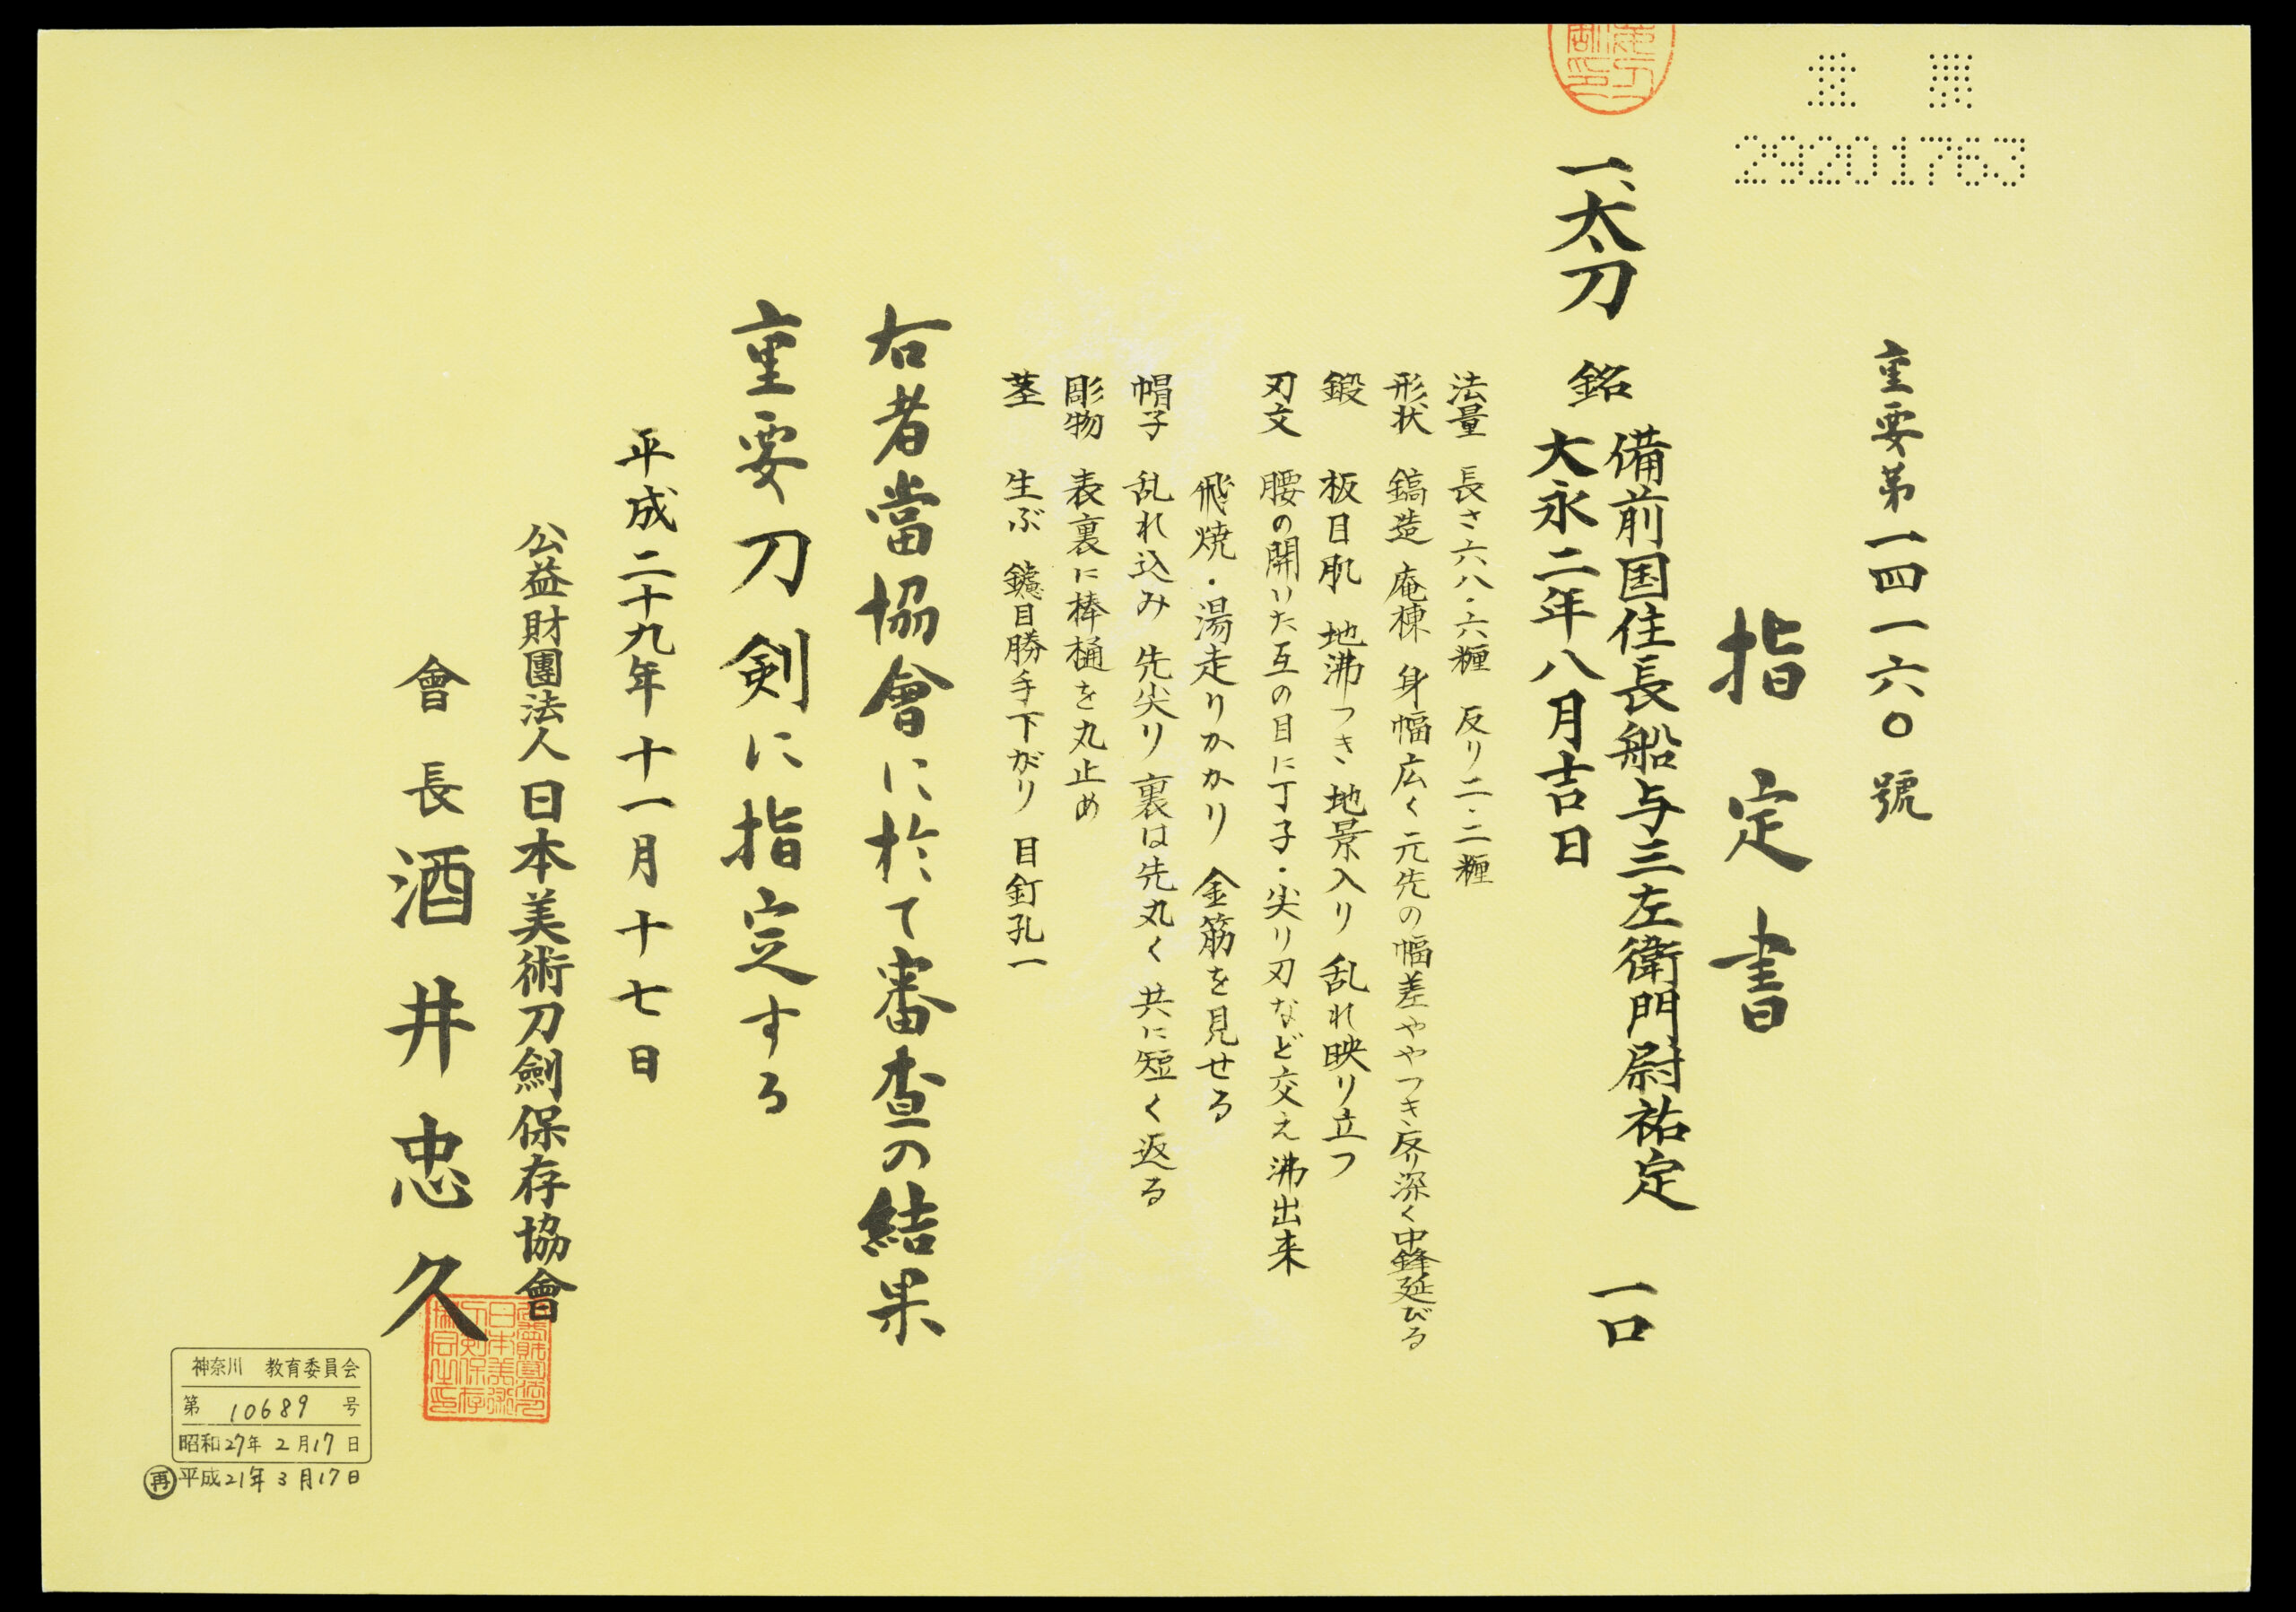 29201763
重要第一四一六〇號
指定書
一、太刀 銘 備前国住長船与三左衛門尉祐定 一口
大永二年八月吉日
法量 長さ六八・六糎 反り二・二糎
形状 鎬造 庵棟 身幅広く元先の幅差ややつき、反り深く中鋒延びる
鍛 板目肌 地沸つき、地景入り 乱れ映り立つ
刃文 腰の開いた互の目に丁子・尖り刃など交え沸出来
飛焼・湯走りかかり 金筋を見せる
帽子 乱れ込み 先尖り 裏は先丸く 共に短く返る
彫物 表裏に棒樋を丸止め
茎 生ぶ 鑢目勝手下がり 目釘孔一
右者當協會に於て審査の結果
重要刀剣に指定する
平成二十九年十一月十七日
公益財團法人日本美術刀劍保存協會
會長 酒井忠久
神奈川 教育委員会
第 10689 号
昭和27年2月17日
再 平成21年3月17日